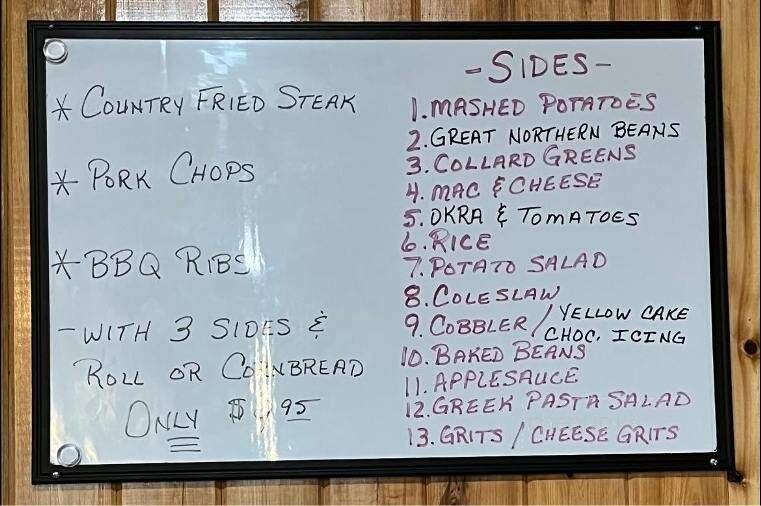 * COUNTRY FRIED STEAK
* PORK CHOPS
* BBQ RIBS
- WITH 3 SIDES &
ROLL OR CORNBREAD
ONLY
- SIDES -
1. MASHED POTATOES
2. GREAT NORTHERN BEANS
3. COLLARD GREENS
4. MAC & CHEESE
5. OKRA & TOMATOES
6. RICE
7. POTATO SALAD
8. COLESLAW
9. COBBLER / YELLOW CAKE
CHOC. ICING
10. BAKED BEANS
11. APPLESAUCE
12. GREEK PASTA SALAD
13. GRITS / CHEESE GRITS